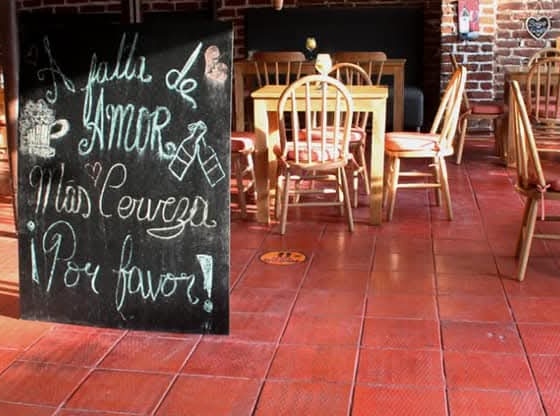 A falta de
AMOR
Más Cerveza
¡Por favor!